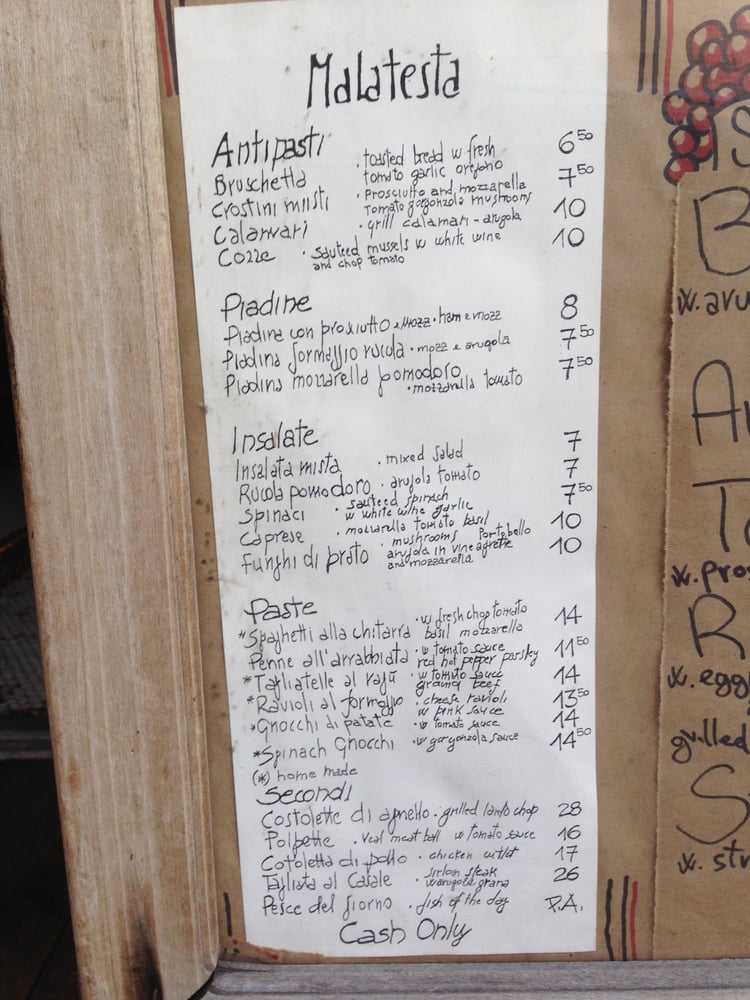 Malatesta
Antipasti
Bruschetta . toasted bread w fresh tomato garlic oregano 6 50
Crostini misti . Prosciutto and mozzarella Tomato gorgonzola mushrooms 7 50
Calamari . grill calamari - arugola 10
Cozze . sauteed mussels w white wine and chop tomato 10
Piadine
Piadina con prosciutto e mozz . ham e mozz 8
Piadina formaggio rucola . mozz e arugola 7 50
Piadina mozzarella pomodoro . mozzarella tomato 7 50
Insalate
Insalata mista . mixed salad 7
Rucola pomodoro . arugola tomato 7
Spinaci . sauteed spinach w white wine garlic 7 50
Caprese . mozzarella tomato basil 10
Funghi di prato . mushrooms Portobello arugola in vineagrette and mozzarella 10
Paste
*Spaghetti alla chitarra . w fresh chop tomato basil mozzarella 14
Penne all'arrabbiata . w tomato sauce red hot pepper parsley 11 50
*Tagliatelle al ragu . w tomato sauce ground beef 14
*Ravioli al formaggio . cheese ravioli w pink sauce 13 50
*Gnocchi di patate . w tomato sauce 14
*Spinach Gnocchi . w gorgonzola sauce 14 50
(*) home made
Secondi
Costolette di agnello . grilled lamb chop 28
Polpette . veal meat ball w tomato sauce 16
Cotoletta di pollo . chicken cutlet 17
Tagliata al Casale . sirloin steak w arugola grana 26
Pesce del giorno . fish of the day P.A.
Cash Only
B
w. aru
w. pros
R
w. egg
grilled
w. str